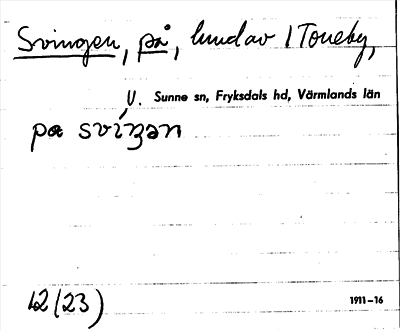 Svingen, på, lund av 1 Toneby,
V. Sunne sn, Fryksdals hd, Värmlands län
pa svíŋən
42 (23)
1911-16